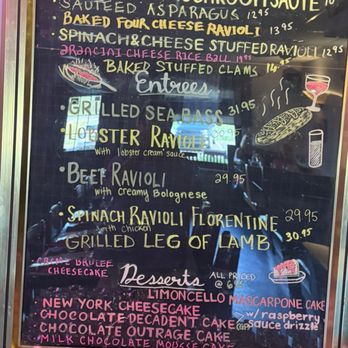 SAUTEED ASPARAGUS 12.95
• BAKED FOUR CHEESE RAVIOLI 13.95
• SPINACH & CHEESE STUFFED RAVIOLI 12.95
ARANCINI CHEESE RICE BALL
BAKED STUFFED CLAMS
Entrees
• GRILLED SEA BASS 31.95
• LOBSTER RAVIOLI 30.95
with lobster cream sauce
• BEEF RAVIOLI 29.95
with creamy Bolognese
• SPINACH RAVIOLI FLORENTINE 29.95
with chicken
GRILLED LEG OF LAMB 30.95
CREME BRULEE
CHEESECAKE
Desserts
ALL PRICED
LIMONCELLO MASCARPONE CAKE
NEW YORK CHEESECAKE
w/ raspberry
sauce drizzle
CHOCOLATE DECADENT CAKE
CHOCOLATE OUTRAGE CAKE
MILK CHOCOLATE MOUSSE CAKE